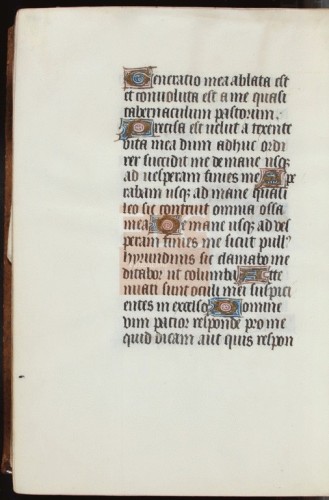 Generatio mea ablata est
et convoluta est a me quasi
tabernaculum pastorum.
Precisa est velut a texente
vita mea dum adhuc ordi
rer succidit me de mane usqȝ
ad vesperam finies me Spe
rabam usqȝ ad mane quasi
leo sic contrivit omnia ossa
mea De mane usqȝ ad ves
peram finies me sicut pull9
hyrundinis sic clamabo me
ditabor ut columba Atte
nuati sunt oculi mei suspici
entes in excelsȝ Domine
vim patior responde pro me
quid dicam aut quis respon